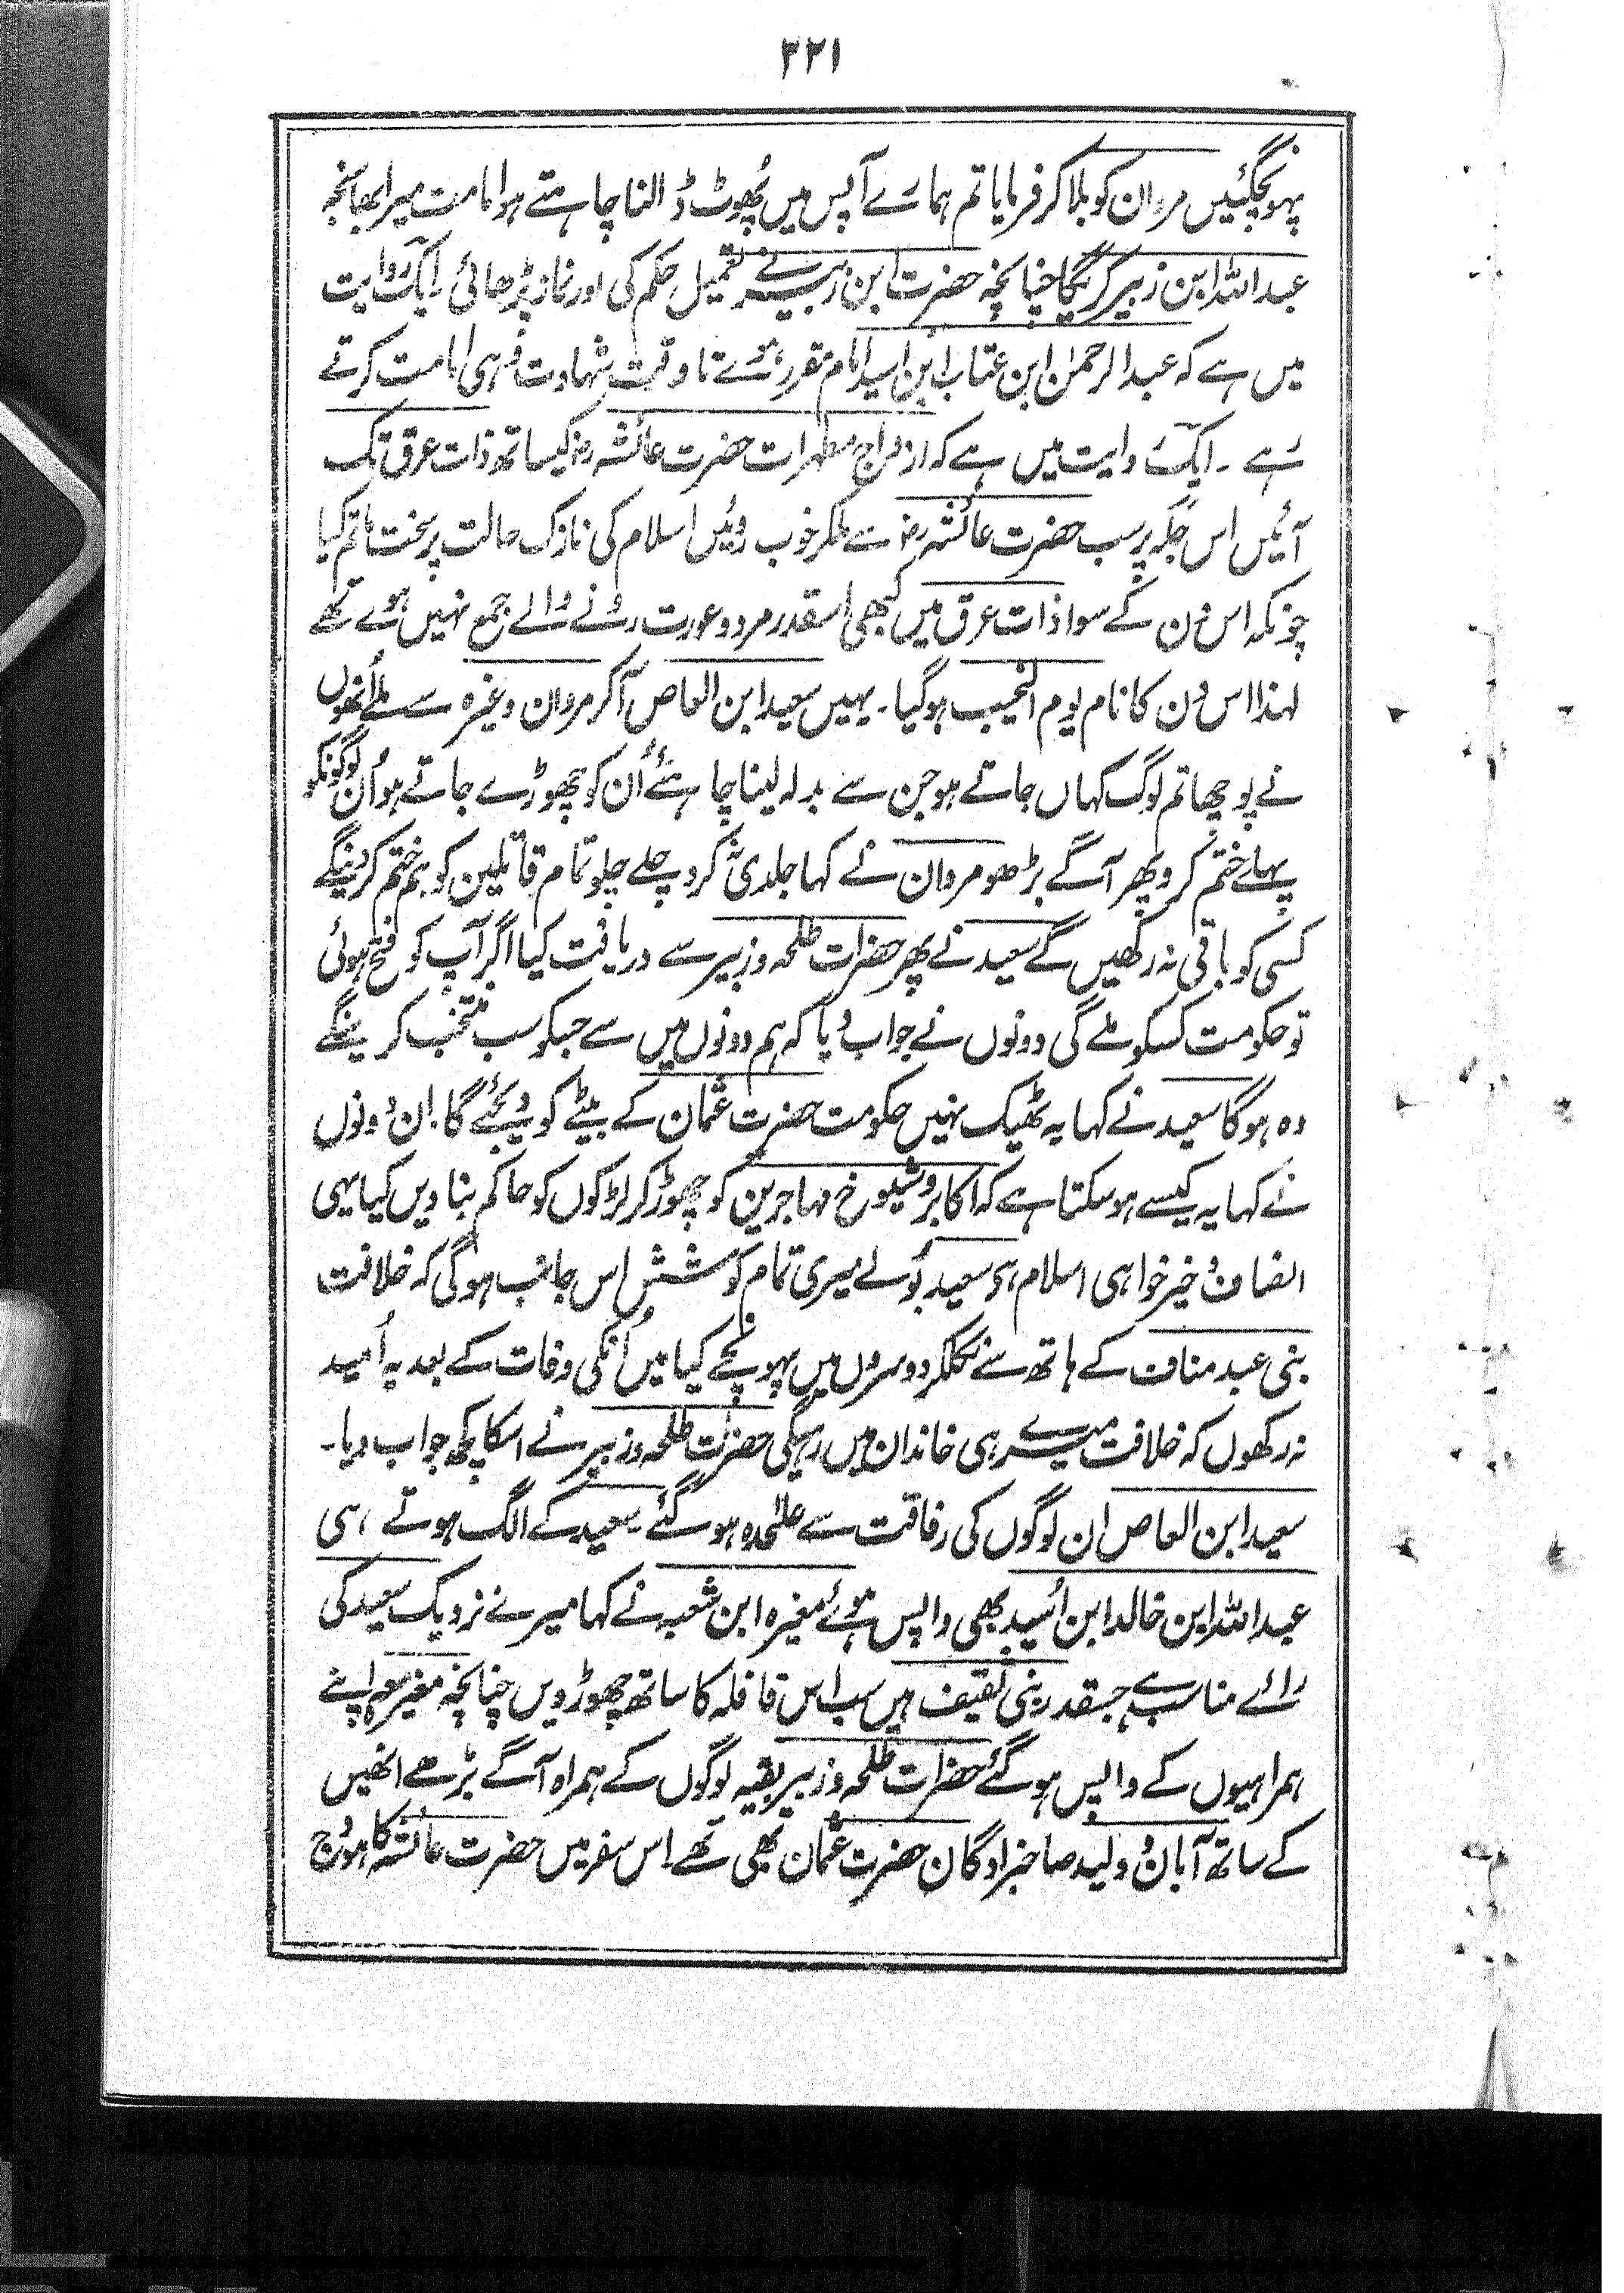 ۳۲۱
پہونچگئیں مروان کو بلا کر فرمایا تم ہمارے آپس میں پُھوٹ ڈالنا چاہتے ہو امامت میرا بھانجہ
عبداللہ ابن زبیر کریگا چنانچہ حضرت ابن زبیر نے تعمیل حکم کی اور نماز پڑھائی۔ ایک روایت
میں ہے کہ عبدالرحمٰن ابن عتاب ابن اسید امام مقرر ہوئے تا وقت شہادت وہی امامت کرتے
رہے ۔ ایک روایت میں ہے کہ ازواج مطہرات حضرت عائشہ رضہ کیساتھ ذات عرق تک
آئیں اس جگہ پر سب حضرت عائشہ رضہ سے ملکر خوب روئیں اسلام کی نازک حالت پر سخت ماتم کیا
چونکہ اس دن کے سوا ذات عرق میں کبھی اسقدر مرد و عورت رونے والے جمع نہیں ہوے تھے
لہذا اس دن کا نام یوم النحیب ہو گیا ۔ یہیں سعید ابن العاص آکر مروان وغیرہ سے ملے اُنھوں
نے پوچھا تم لوگ کہاں جاتے ہو جن سے بدلہ لینا چاہئے اُن کو چھوڑے جاتے ہو اُن لوگونکو
پہلے ختم کرو پھر آگے بڑھو مروان نے کہا جلدی نہ کرو چلے چلو تمام قاتلین کو ہم ختم کر دینگے
کسی کو باقی نہ رکھیں گے سعید نے پھر حضرات طلحہ و زبیر سے دریافت کیا اگر آپ کو فتح ہوئی
تو حکومت کسکو ملے گی دونوں نے جواب دیا کہ ہم دونوں میں سے جسکو سب منتخب کر لینگے
وہ ہوگا سعید نے کہا یہ ٹھیک نہیں حکومت حضرت عثمان کے بیٹے کو دیجئے گا ان دونوں
نے کہا یہ کیسے ہو سکتا ہے کہ اکابر و شیوخ مہاجرین کو چھوڑ کر لڑکوں کو حاکم بنا دیں کیا یہی
انصاف و خیر خواہی اسلام ہے سعید بولے میری تمام کوشش اس جانب ہوگی کہ خلافت
بنی عبد مناف کے ہاتھ سے نکلکر دوسروں میں پہونچے کیا میں اُنکی وفات کے بعد یہ اُمید
نہ رکھوں کہ خلافت میرے ہی خاندان میں رہیگی حضرت طلحہ و زبیر نے اسکا کچھ جواب دیا ۔
سعید ابن العاص ان لوگوں کی رفاقت سے علٰحدہ ہو گئے ۔ سعید کے الگ ہوتے ہی
عبداللہ ابن خالد ابن اُسید بھی واپس ہوئے مغیرہ ابن شعبہ نے کہا میرے نزدیک سعید کی
رائے مناسب ہے جسقدر بنی ثقیف ہیں سب اس قافلہ کا ساتھ چھوڑ دیں چنانچہ مغیرہ معہ اپنے
ہمراہیوں کے واپس ہو گئے حضرات طلحہ و زبیر بقیہ لوگوں کے ہمراہ آگے بڑھے انھیں
کے ساتھ آبان و ولید صاحبزادگان حضرت عثمان بھی تھے اس سفر میں حضرت عائشہ کا ہودج